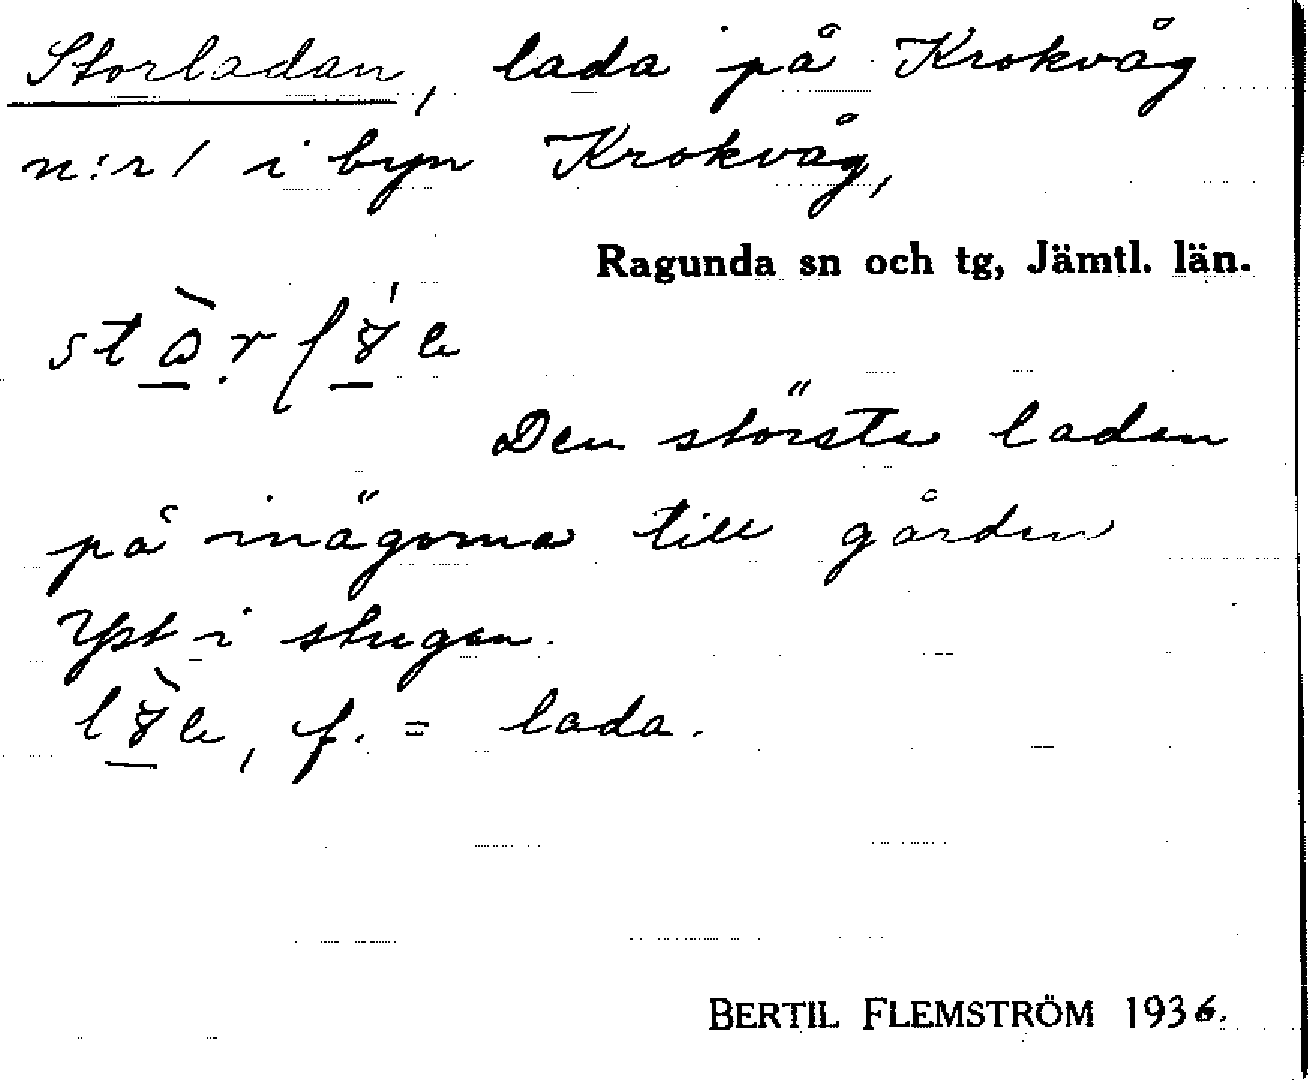 Storladan, lada på Krokvåg
n:r 1 i byn Krokvåg,
Ragunda sn och tg, Jämtl. län.
Den största ladan
på inägorna till gården
Yst i stugan.
f. = lada.
BERTIL FLEMSTRÖM 1936.